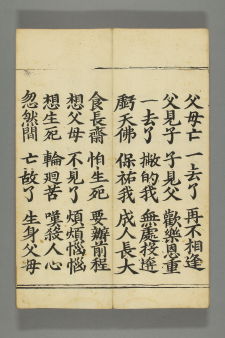 父母亡 一去了 再不相逢
父見子 子見父 歡樂恩重
一去了 撇的我 無處投遶
虧天佛 保祐我 成人長大
食長齋 怕生死 要辦前程
想父母 不見了 煩煩惱惱
想生死 輪廻苦 嘆殺人心
忽然間 亡故了 生身父母